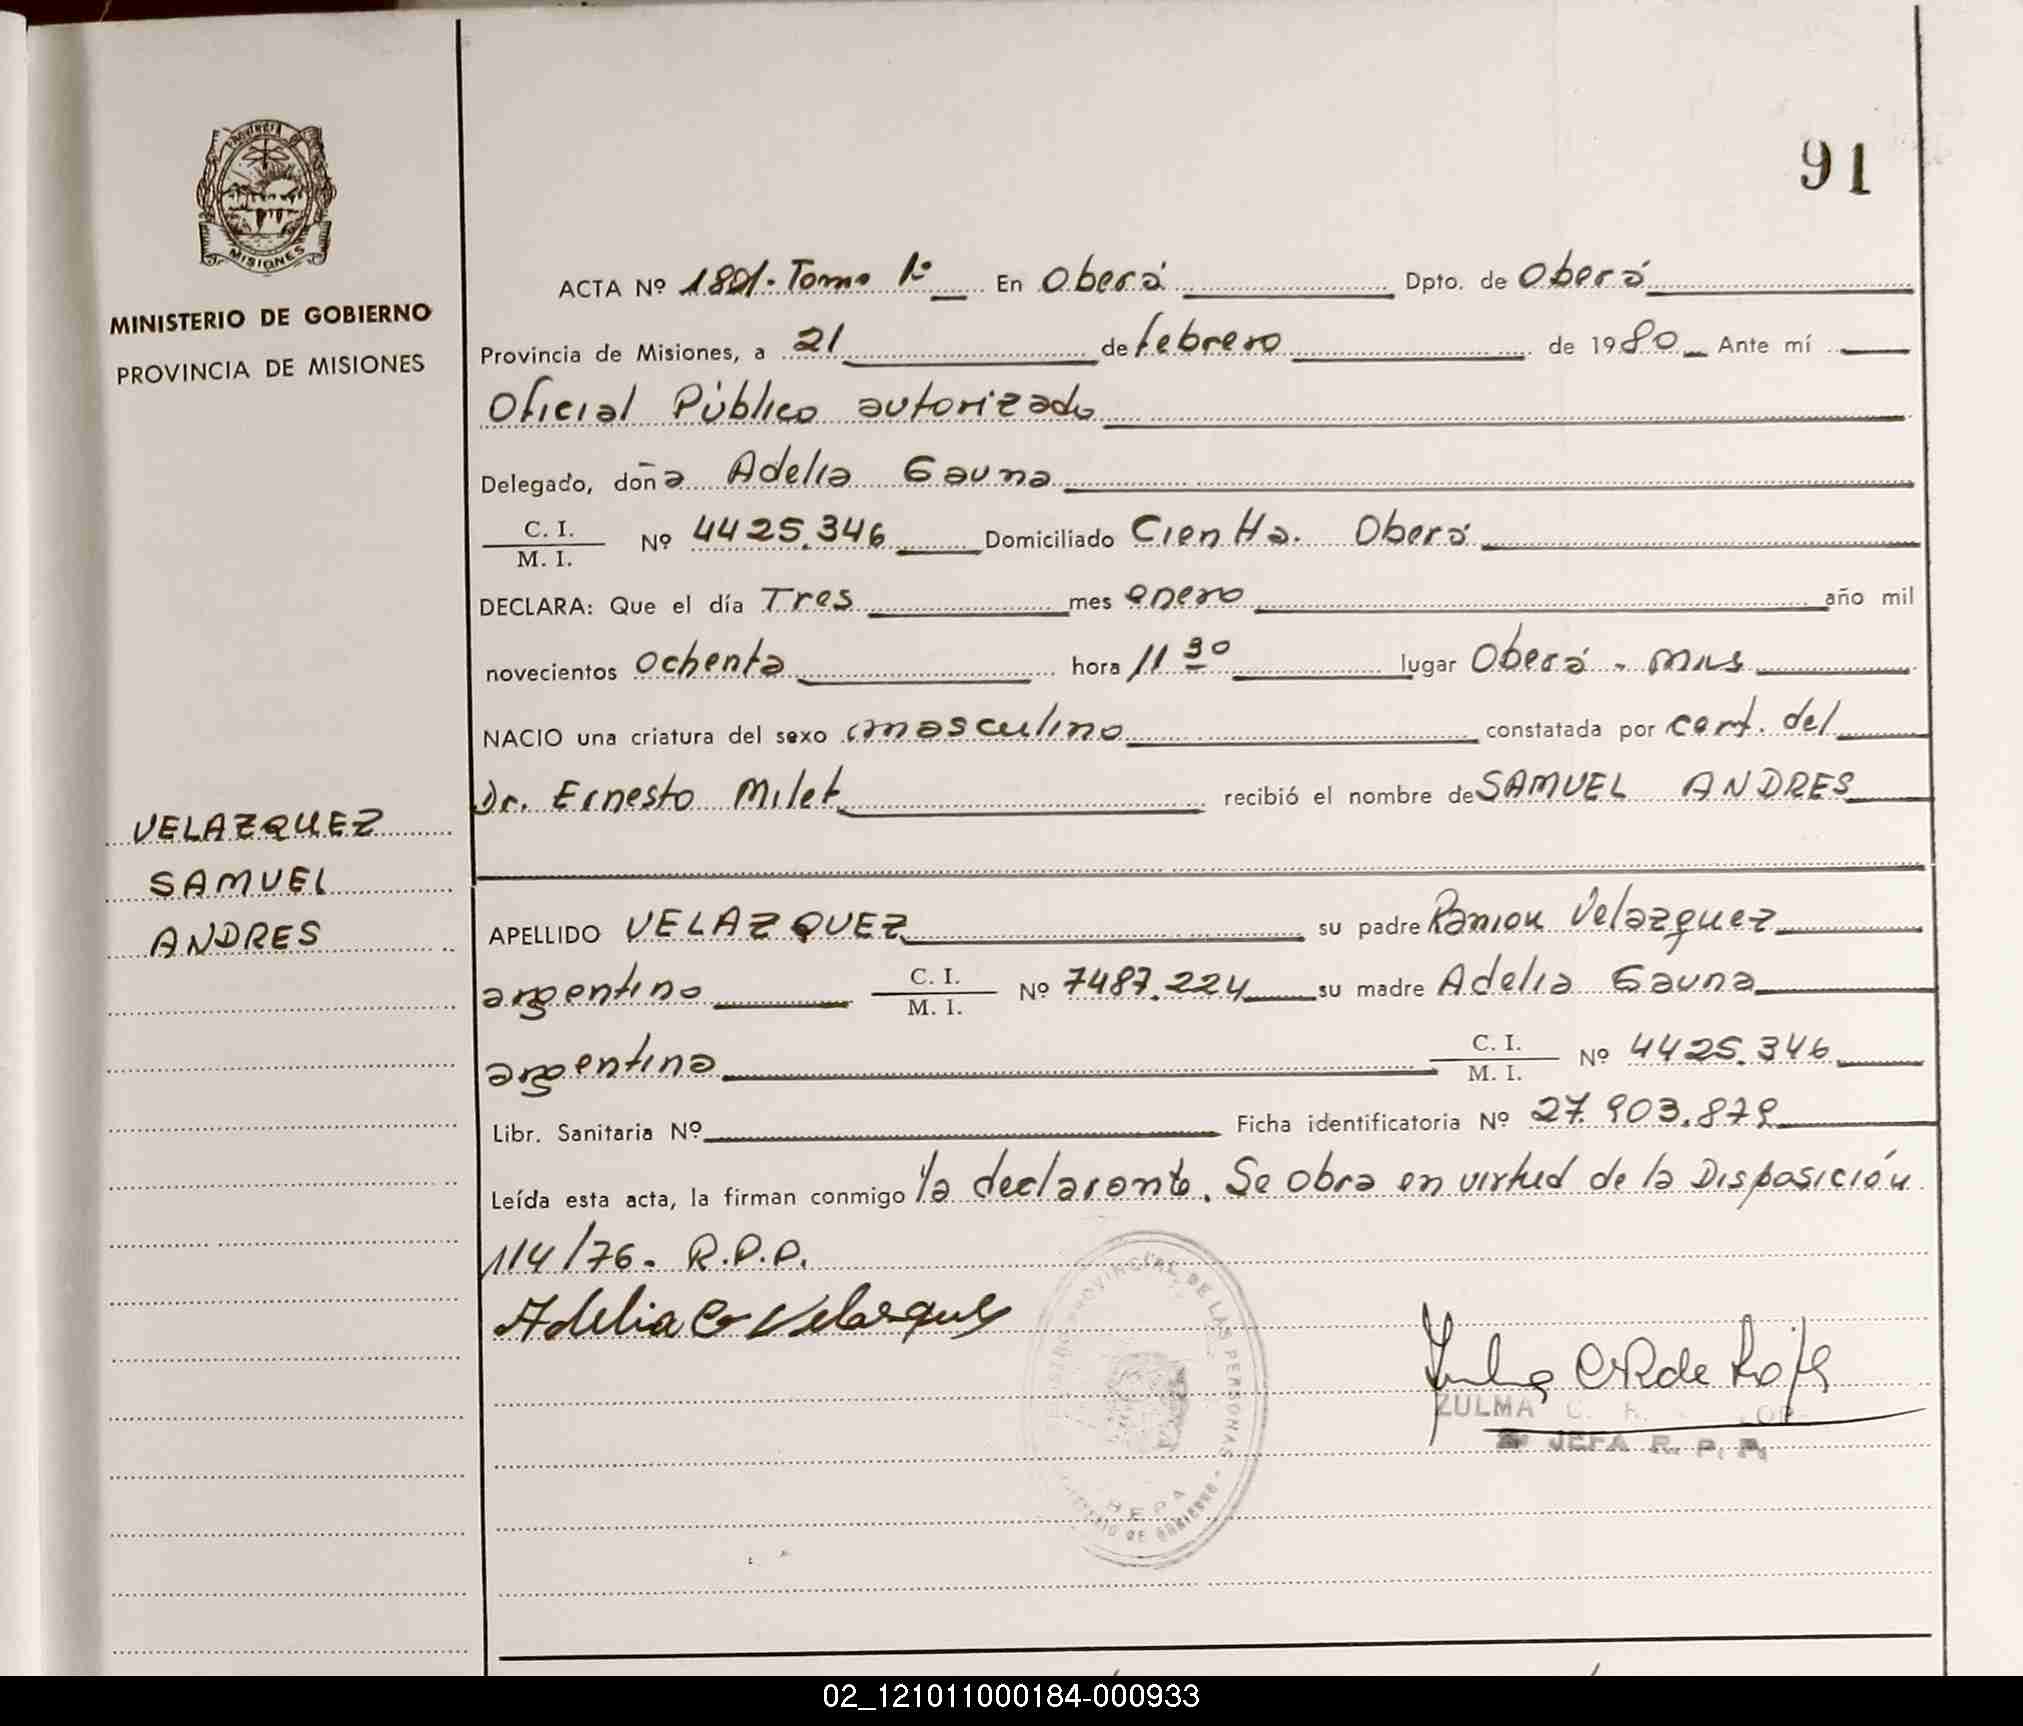 91
PROVINCIA DE
MISIONES
MINISTERIO DE GOBIERNO
PROVINCIA DE MISIONES
ACTA Nº 1801. Tomo 1º En Oberá Dpto. de Oberá
Provincia de Misiones, a 21 de febrero de 1980 Ante mí
Oficial Público autorizado
Delegado, doña Adelia Gauna
C. I.
M. I. Nº 4425.346 Domiciliado Cien Ha. Oberá
DECLARA: Que el día Tres mes enero año mil
novecientos ochenta hora 11 30 lugar Oberá - Mns
NACIO una criatura del sexo masculino constatada por cert. del
Dr. Ernesto Milet recibió el nombre de SAMUEL ANDRES
VELAZQUEZ
SAMUEL
ANDRES
APELLIDO VELAZQUEZ su padre Ramon Velazquez
argentino C. I.
M. I. Nº 7487.224 su madre Adelia Gauna
argentina C. I.
M. I. Nº 4425.346
Libr. Sanitaria Nº Ficha identificatoria Nº 27.903.879
Leída esta acta, la firman conmigo la declarante. Se obra en virtud de la Disposición
114/76. R.P.P.
Adelia G Velasquez
PROVINCIAL DE LAS PERSONAS
DE GOBIERNO
ZULMA C.
JEFA R. P. P.
02_121011000184-000933